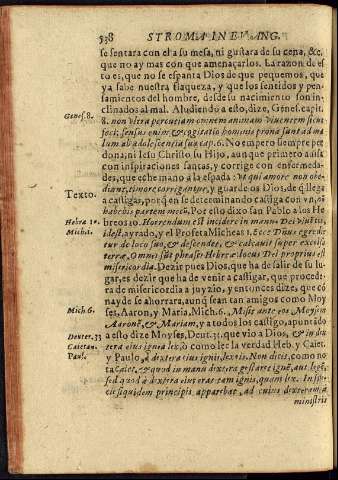 538 STROMA IN EVANG.
se sentara con el a su mesa, ni gustara de su cena, &c.
que no ay mas con que amenaçarlos. La razon de es
to es, que no se espanta Dios de que pequemos, que
ya sabe nuestra flaqueza, y que los sentidos y pen-
samientos del hombre, desde su nacimiento son in-
clinados al mal. Aludiendo a esto, dize, Genes. capit.
Genes. 8.
8. non ultra percutiam omnem animam viventem sicut
feci: sensus enim & cogitatio hominis prona sunt ad ma
lum ab adolescentia sua cap. 6. No empero siempre per
dona, ni Iesu Christo su Hijo, aunque primero auisa
con inspiraciones santas, y corrige con enfermeda-
des, que eche mano a la espada: vt qui amore non obe-
diant, timore corrigantur, y guarde os Dios, de q̃ llegue
Texto.
a castigar, porq̃ en se determinando castiga con vn, nõ
habebis partem mecũ. Por esto dixo san Pablo a los He
Hebra 10.
breos 10. Horrendum est incidere in manus Dei viuẽtis,
Mich. 1.
id est, ayrado, y el Profeta Micheas 1. Ecce Dñus egredie
tur de loco suo, & descendet, & calcauit super excelsa
terræ. Omnes sũt phrases Hebrææ locus Dei proprius est
misericordia. Dezir pues Dios, que ha de salir de su lu-
gar, es dezir que ha de venir a castigar, que procede
ra de misericordia a juyzio, y entonces dize, que co
nayde se ahorrara, aunq̃ sean tan amigos como Moy
Mich. 6.
ses, Aaron, y Maria, Mich. 6. Misit ante vos, Moysem
Aaronẽ, & Mariam, y a todos los castigo, apuntado
Deuter. 33
a esto dize Moyses, Deut. 31. que vio a Dios, & in dex
Caietan.
tera eius ignea lex, ò como lee la verdad Heb. y Caiet.
Paul.
y Paulo, à dextera eius ignis, lex eis. Non dicit, como no
ta Caiet. & quod in manu dextera gestaret ignẽ, aut legẽ,
sed quod a dextera eius erat tam ignis, quam lex. In spe-
cie siquidem principis apparebat, ad cuius dexteram à
ministris